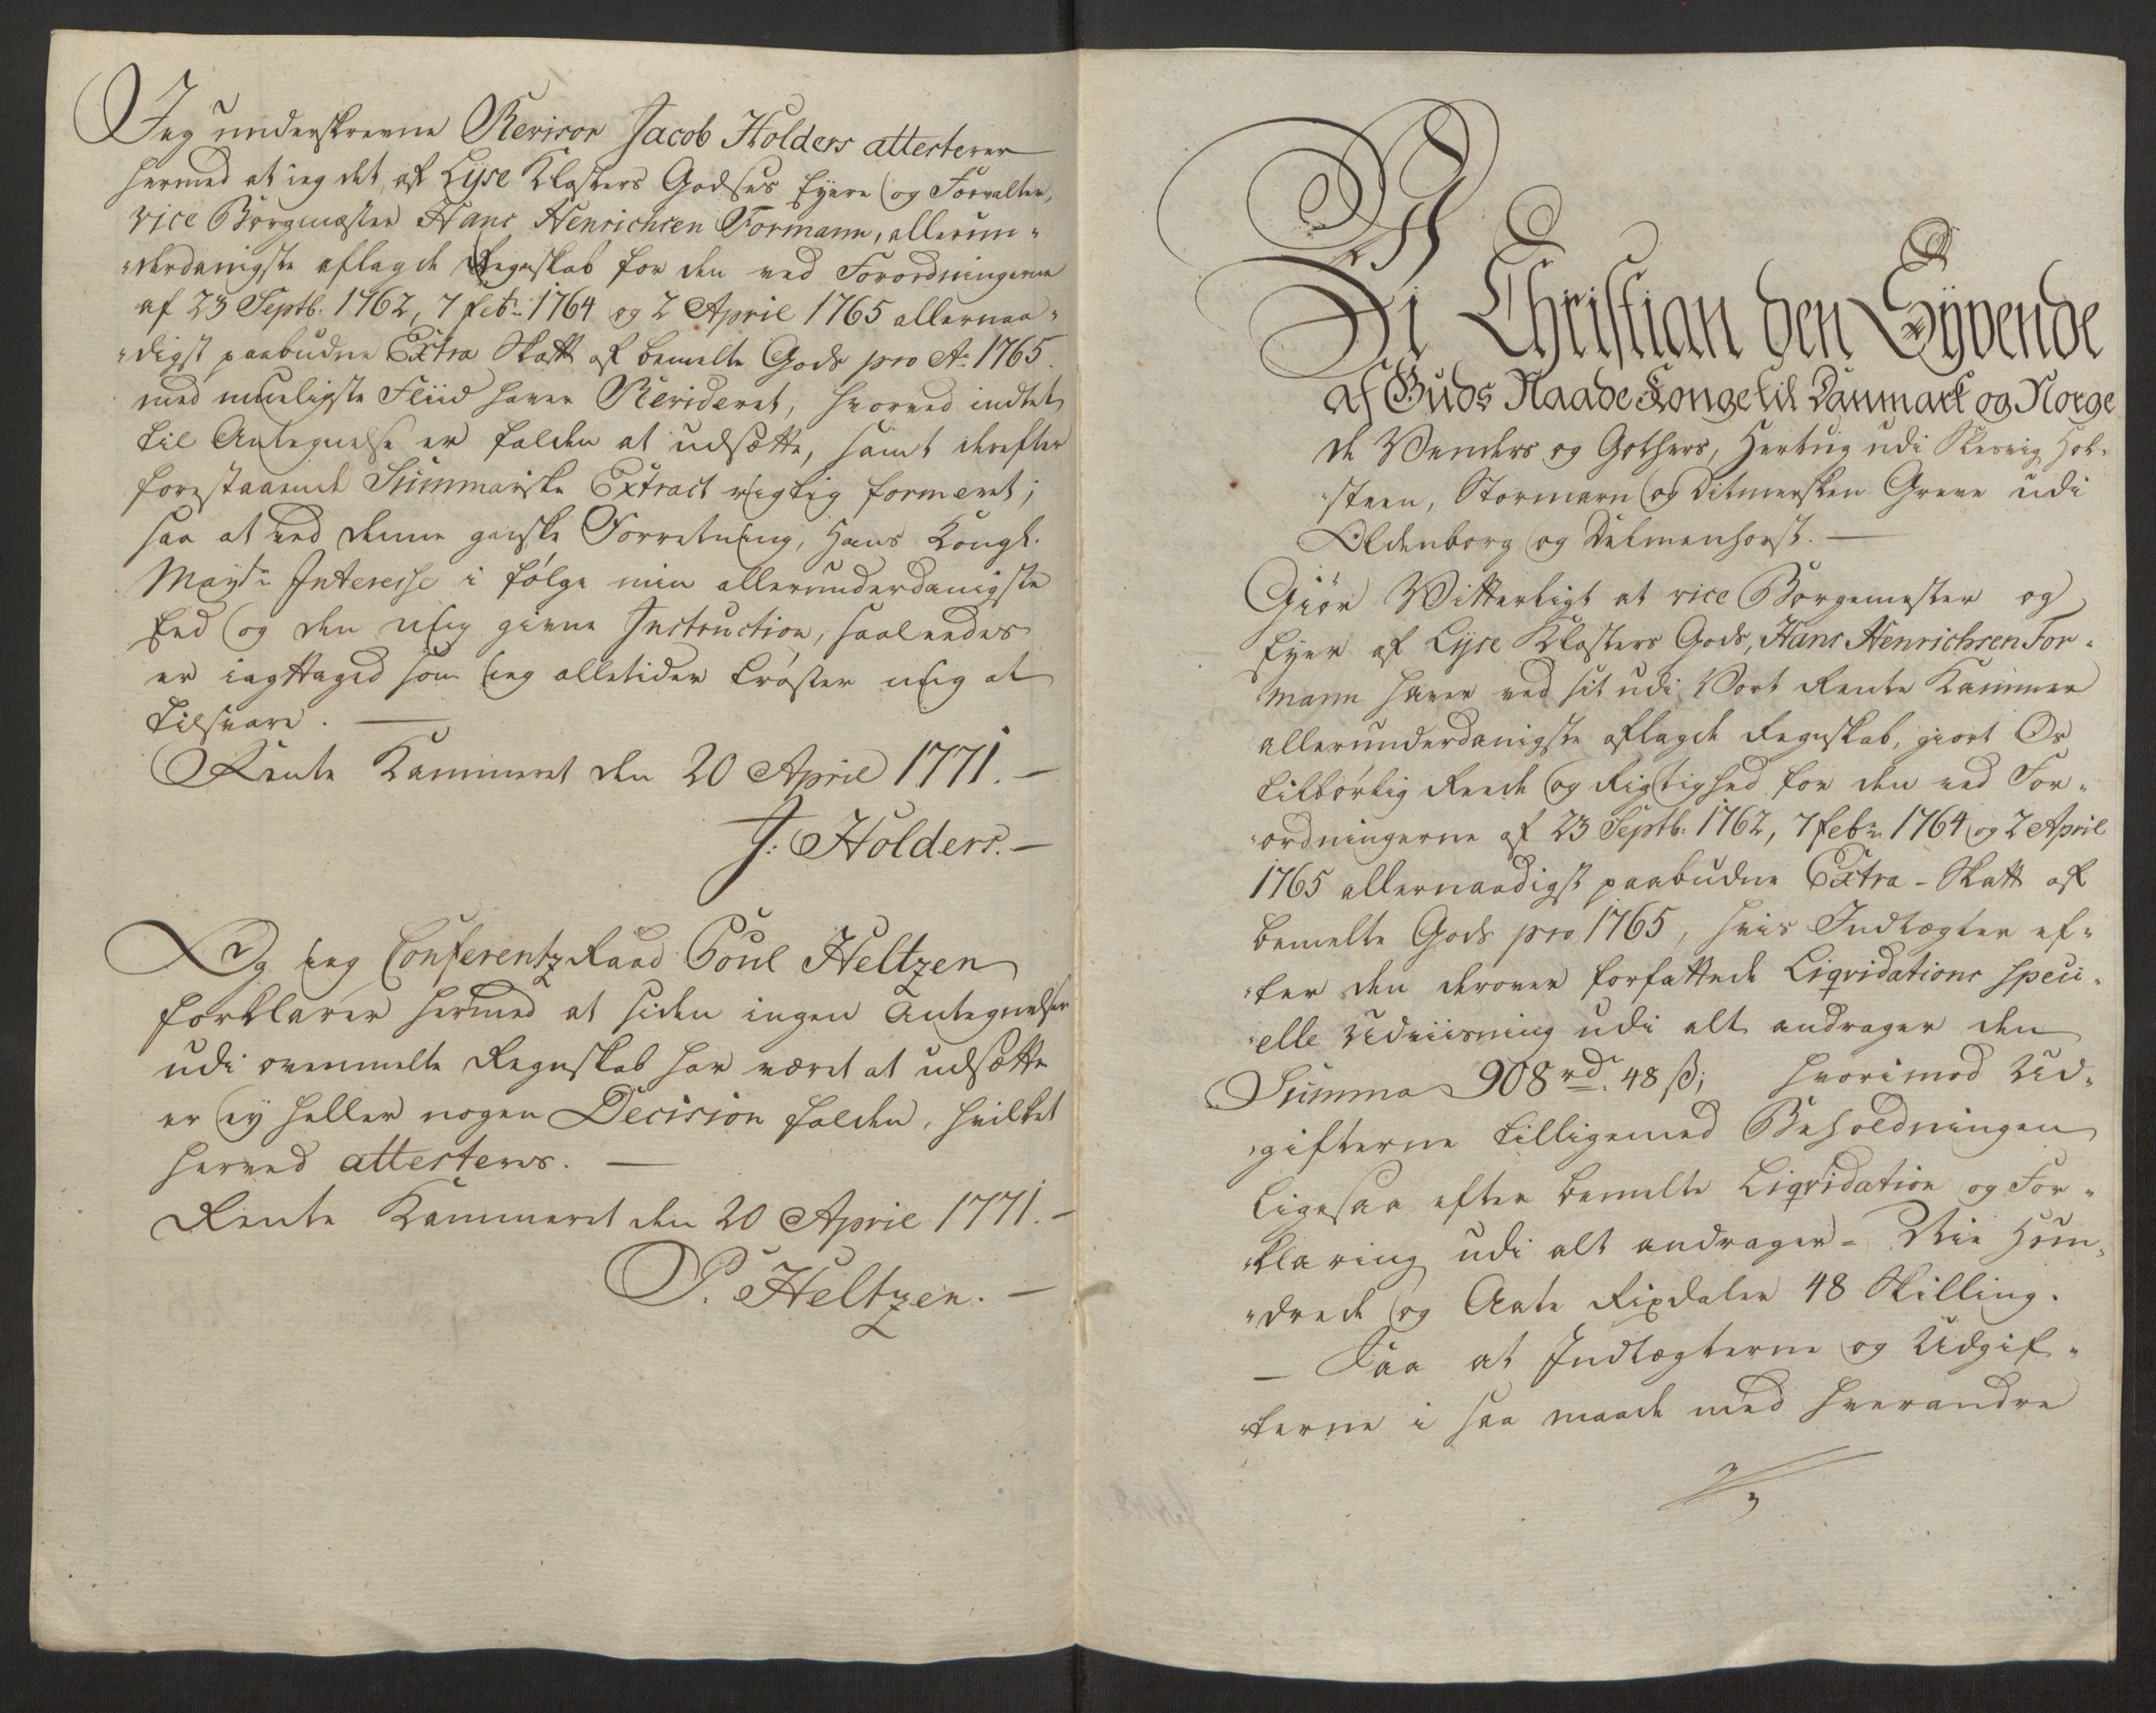 Jeg underskrevne Revisor Jacob Holders attesterer
hermed at ieg det, af Lyse Klosters Godses Eyere og Forvalter,
vice Borgmester Hans Henrichsen Formann, allerun„
„derdanigste aflagde Regnskab for den ved Forordningerne
af 23 Septb. 1762, 7 Febr: 1764 og 2 April 1765 allernaa„
„digst paabudne Extra Skatt af bemelte Gods pro Ao 1765.
med mueligste Fliid haver Revideret, hvorved indtet
til Antegnelse er falden at udsætte, samt derefter
forestaaende Summariske Extract rigtig formeret;
saa at ved denne ganske Forretning, Hans Kongl.
Mayts Interesse i følge min allerunderdanigste
Eed og den mig givne Instruction, saaleedes
er iagttaged som ieg alletider trøster mig at
tilsvare. —
Rente Kammeret den 20 April 1771. —
J: Holders. —
Og ieg Conferentz Raad Poul Heltzen
forklarer hermed at siden ingen Antegnelser
udi ovenmelte Regnskab har været at udsætte
er ey heller nogen Decision falden, hvilket
herved attesteres. —
Rente Kammeret den 20 April 1771. —
P. Heltzen. —
Vi Christian den Syvende
af Guds Naade Konge til Danmark og Norge
de Venders og Gothers, Hertug udi Slesvig Hol„
„steen, Stormarn og Ditmersken Greve udi
Oldenborg og Delmenhorst. —
Giør Vitterligt at vice Borgemester og
Eyer af Lyse Klosters Gods, Hans Henrichsen For„
„mann haver ved sit udi Vort Rente Kammer
allerunderdanigste aflagde Regnskab, giort Os
tilbørlig Reede og Rigtighed for den ved For„
„ordningerne af 23 Septb: 1762, 7 Febr: 1764 og 2 April
1765 allernaadigst paabudne Extra-Skatt af
bemelte Gods pro 1765, hvis Indtægter ef„
„ter den derover forfattede Liqvidations speci„
„elle Udviisning udi alt andrager den
Summa 908 rdr. 48 ß; hvorimod Ud„
„gifterne tilligemed Beholdningen
ligesaa efter bemelte Liqvidation og For„
„klaring udi alt andrager = Nie Hun„
„drede og Aate Rixdaler 48 Skilling.
— Saa at Indtægterne og Udgif„
„terne i saa maade med hverandre